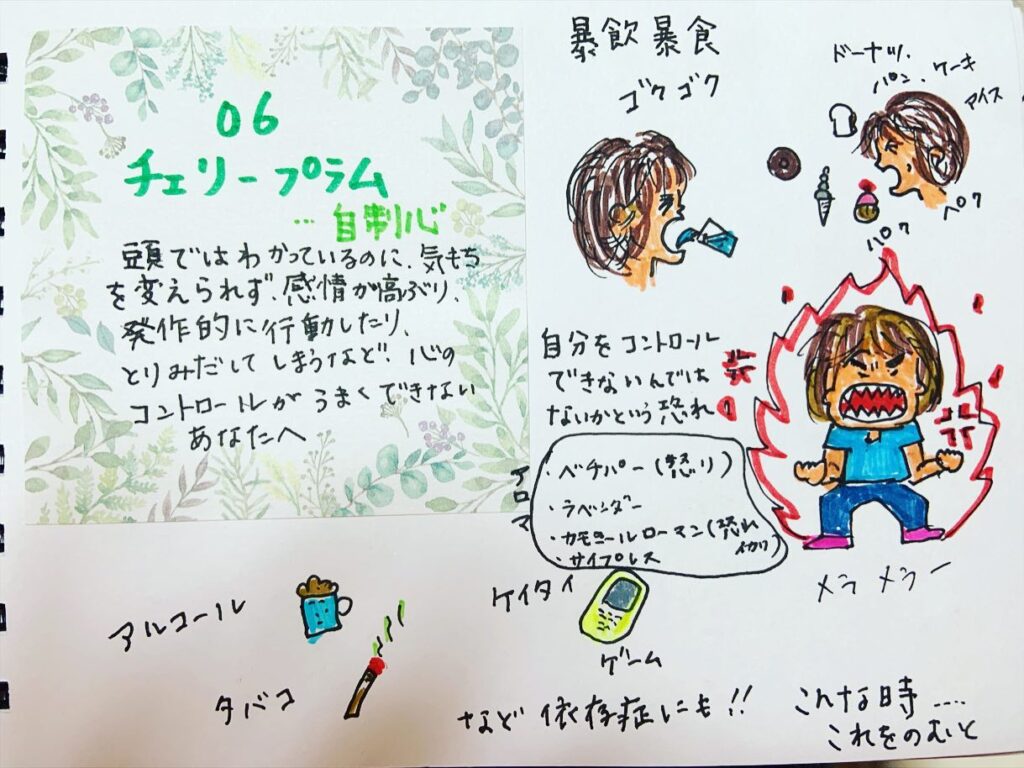 06
チェリープラム
…自制心
頭ではわかっているのに、気もち
を変えられず、感情が高ぶり、
発作的に行動したり、
とりみだしてしまうなど、心の
コントロールがうまくできない
あなたへ
暴飲暴食
ゴクゴク
ドーナツ、
パン、ケーキ
アイス
パク
パク
自分をコントロール
できないんでは
ないかという恐れ
アロマ
・ベチバー(怒り)
・ラベンダー
・カモミールローマン(恐れ
イカリ)
・サイプレス
メラメラー
アルコール
タバコ
ケイタイ
ゲーム
など依存症にも!!
こんな時....
これをのむと